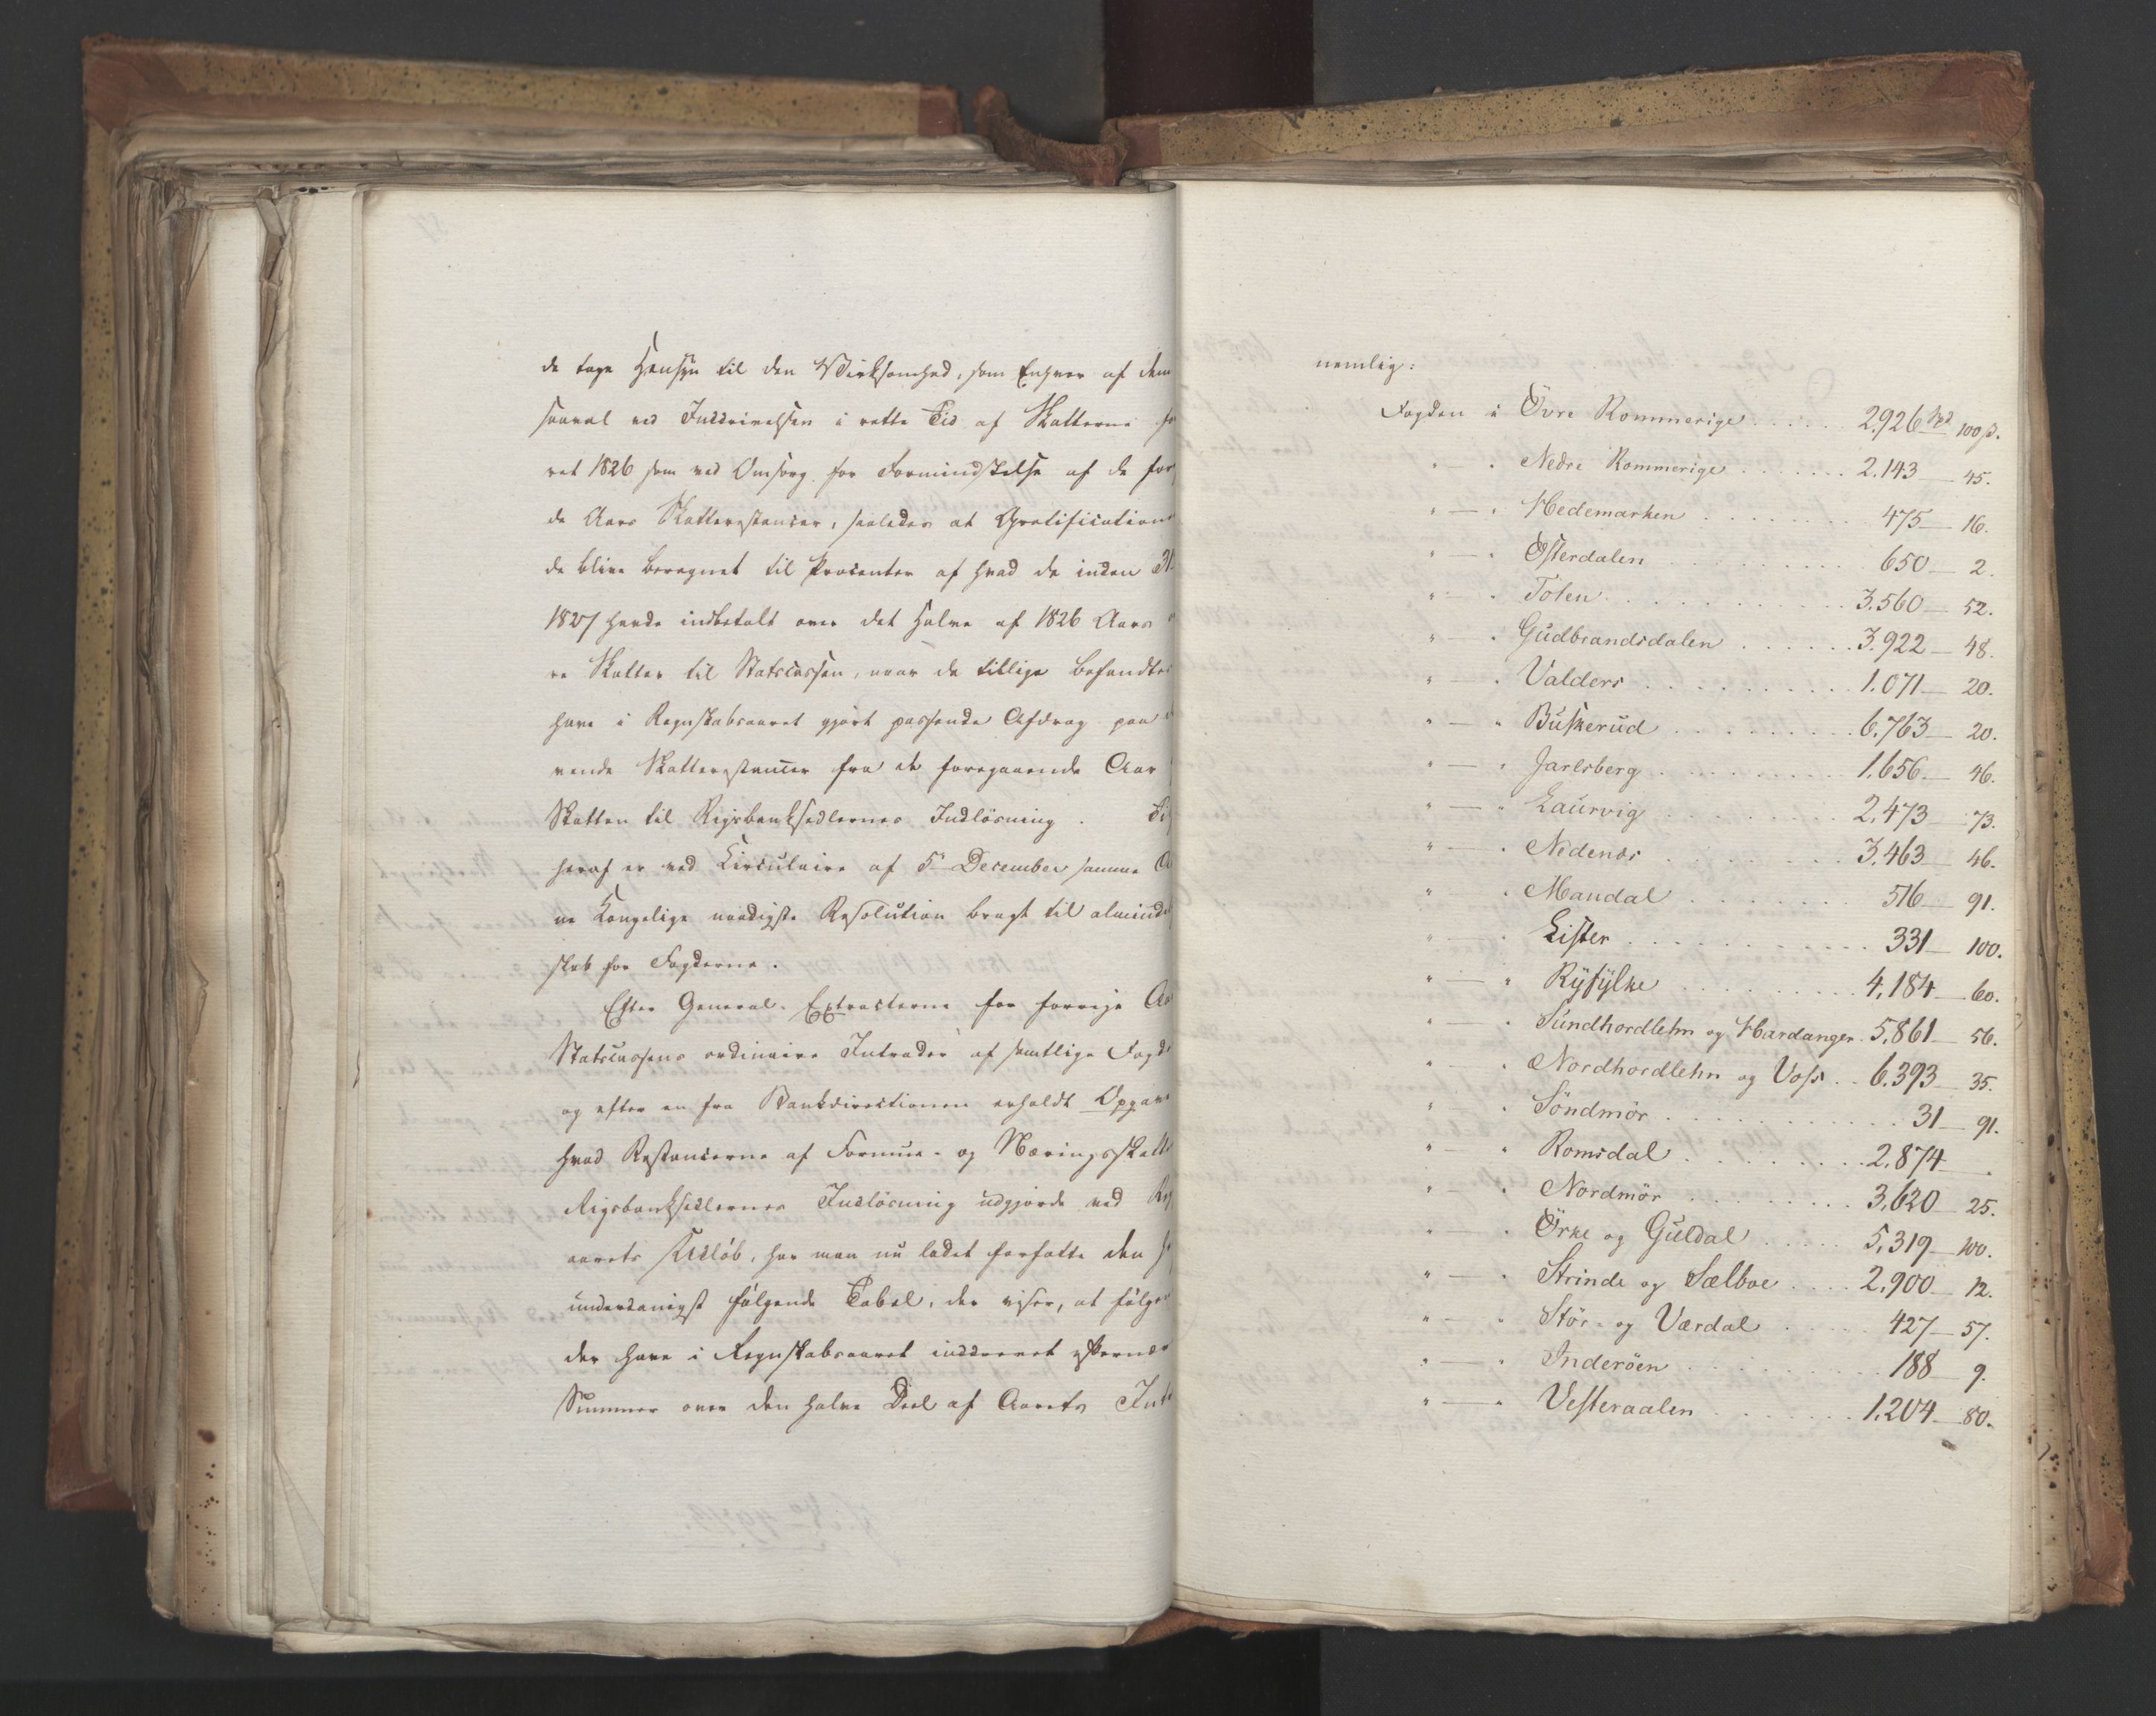 de tage Hensyn til den Virksomhed, som Enhver af dem
saavel ved Inddrivelsen i rette Tid af Skatterne fo
ret 1826 som ved Omsorg for Formindskelse af de for
de Aars Skatterestancer, saaledes at Gratification
de blive beregnet til Procenter af hvad de inden 31
1827 havde indbetalt over det Halve af 1826 Aars
re Skatter til Statscassen, naar de tillige befandtes
have i Regnskabsaaret gjort passende Afdrag paa
rende Skatterestancer fra de foregaaende Aar
Skatten til Rigsbanksedlernes Indlösning.
heraf er ved Circulaire af 5te December samme A
ne Kongelige naadigste Resolution bragt til almind
skab for Fogderne.
Efter General-Extracterne for forrige Aa
Statscassens ordinaire Intrader af samtlige Fogde
og efter en fra Bankdirectionen erholdt Opgave
hvad Restancerne af Formue- og Næringsskatt
Rigsbanksedlernes Indlösning udgjorde ved Reg
aarets Udlöb, har man nu ladet forfatte den h
underdanigst følgende Tabel, der viser, at følgen
der have i Regnskabsaaret inddrevet
Summer over den halve Deel af Aarets Int
nemlig:
Fogden i Övre Rommerige ..... 2.926 Spd 100 ß.
" — " Nedre Rommerige ....... 2.143 — 45.
" — " Hedemarken ........ 475 — 16.
" — " Østerdalen .......... 650 — 2.
" — " Toten ............ 3.560 — 52.
" — " Gudbrandsdalen ...... 3.922 — 48.
" — " Valders .......... 1.071 — 20.
" — " Buskerud ......... 6.763 — 20.
" — " Jarlsberg .......... 1.656 — 46.
" — " Laurvig ......... 2.473 — 73.
" — " Nedenæs ......... 3.463 — 46.
" — " Mandal ......... 516 — 91.
" — " Lister ............ 331 — 100.
" — " Ryfylke .......... 4.184 — 60.
" — " Sundhordlehn og Hardanger . 5.861 — 56.
" — " Nordhordlehn og Voss .. 6.393 — 35.
" — " Söndmör ............ 31 — 91.
" — " Romsdal .......... 2.874 — .
" — " Nordmör ......... 3.620 — 25.
" — " Örke og Guldal ..... 5.319 — 100.
" — " Strinde og Sælboe .... 2.900 — 12.
" — " Stör- og Værdal ..... 427 — 57.
" — " Inderöen .......... 188 — 9.
" — " Vesteraalen ....... 1.204 — 80.